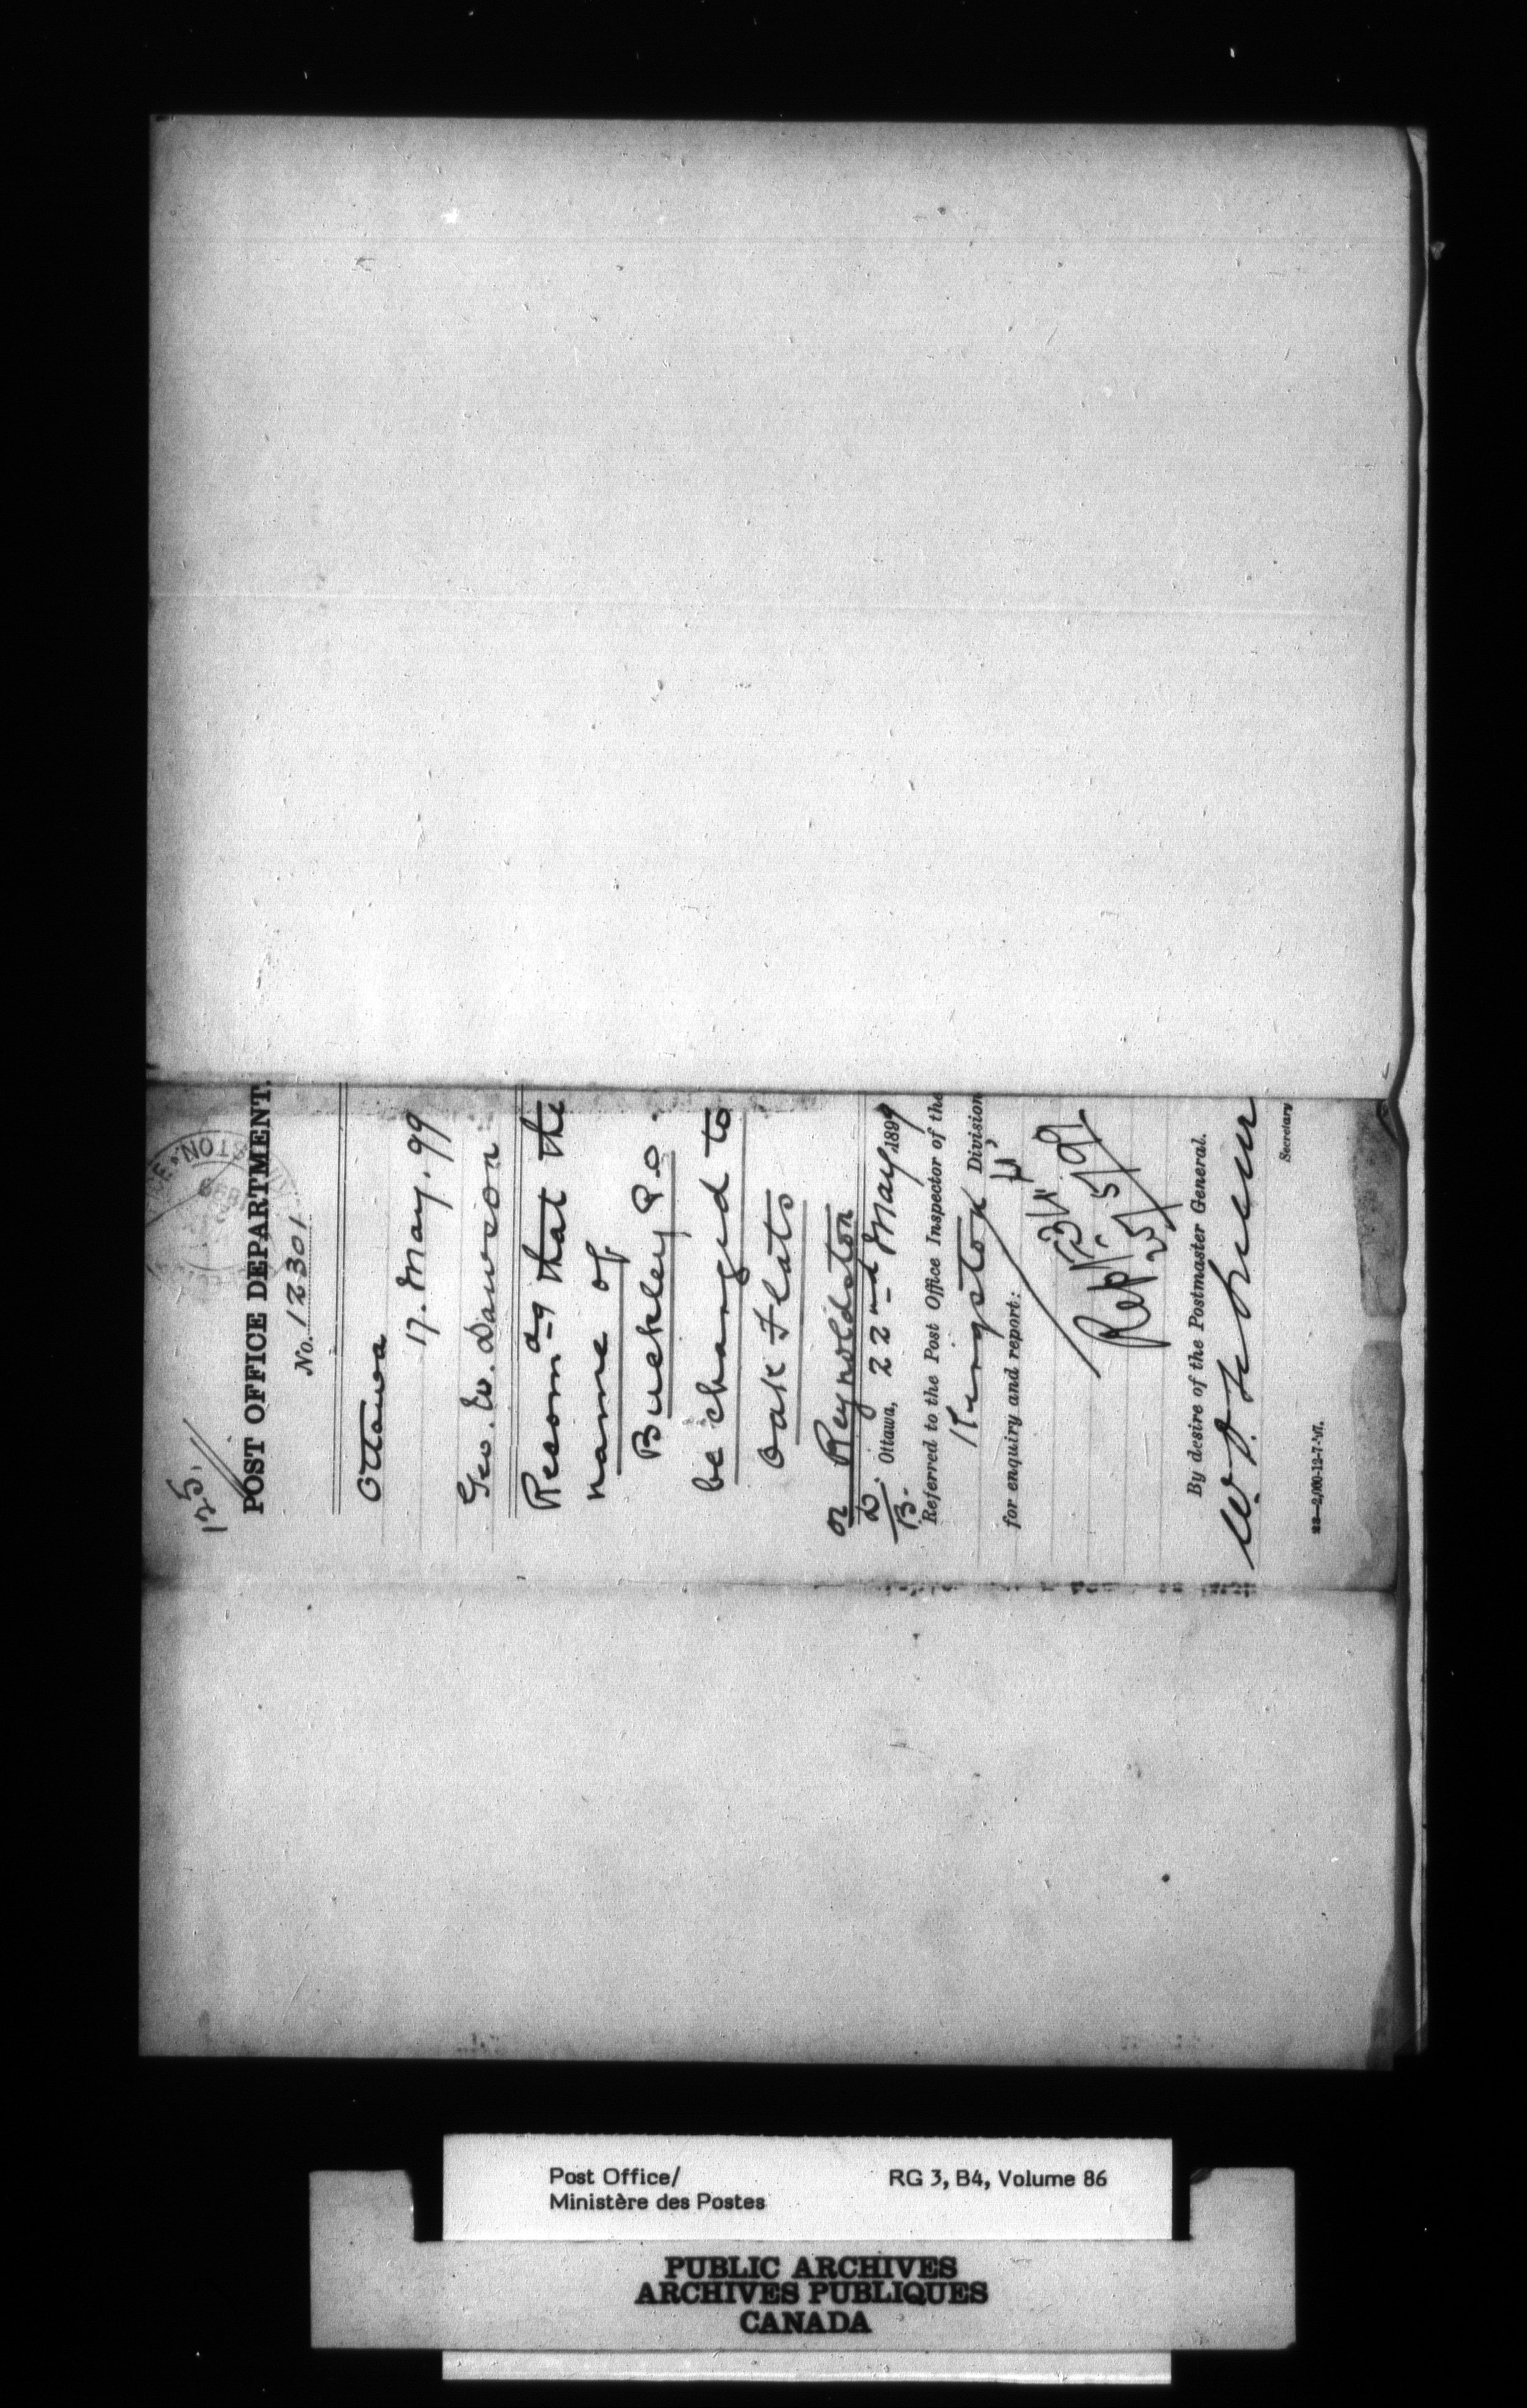 125.
POST OFFICE DEPARTMENT.
No. 12301
Ottawa
17. May. 99
Geo. W. Dawson
Recom-dg that the
name of
Buckley P.O.
be changed to
Oak Flats
or Reynoldston
D. Ottawa, 22nd May 1899
B.
Referred to the Post Office Inspector of the
Kingston Division
for enquiry and report:
Rep
25/5/99
By desire of the Postmaster General.
Secretary
23—2,000-12-7-'97.
Post Office/
Ministère des Postes
RG 3, B4, Volume 86
PUBLIC ARCHIVES
ARCHIVES PUBLIQUES
CANADA